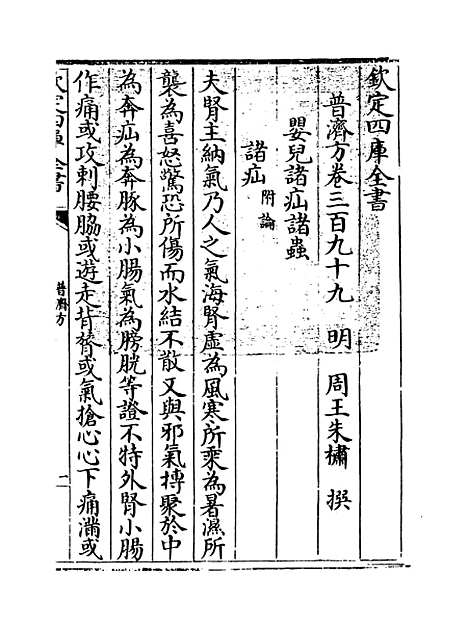 欽定四庫全書
普濟方卷三百九十九　明　周王朱橚　撰
嬰兒諸疝諸蟲
諸疝附論
夫腎主納氣乃人之氣海腎虛為風寒所乘為暑濕所
襲為喜怒驚恐所傷而水結不散又與邪氣搏聚於中
為奔疝為奔豚為小腸氣為膀胱等證不特外腎小腸
作痛或攻刺腰脇或遊走背膂或氣搶心心下痛滿或
欽定四庫全書
普濟方